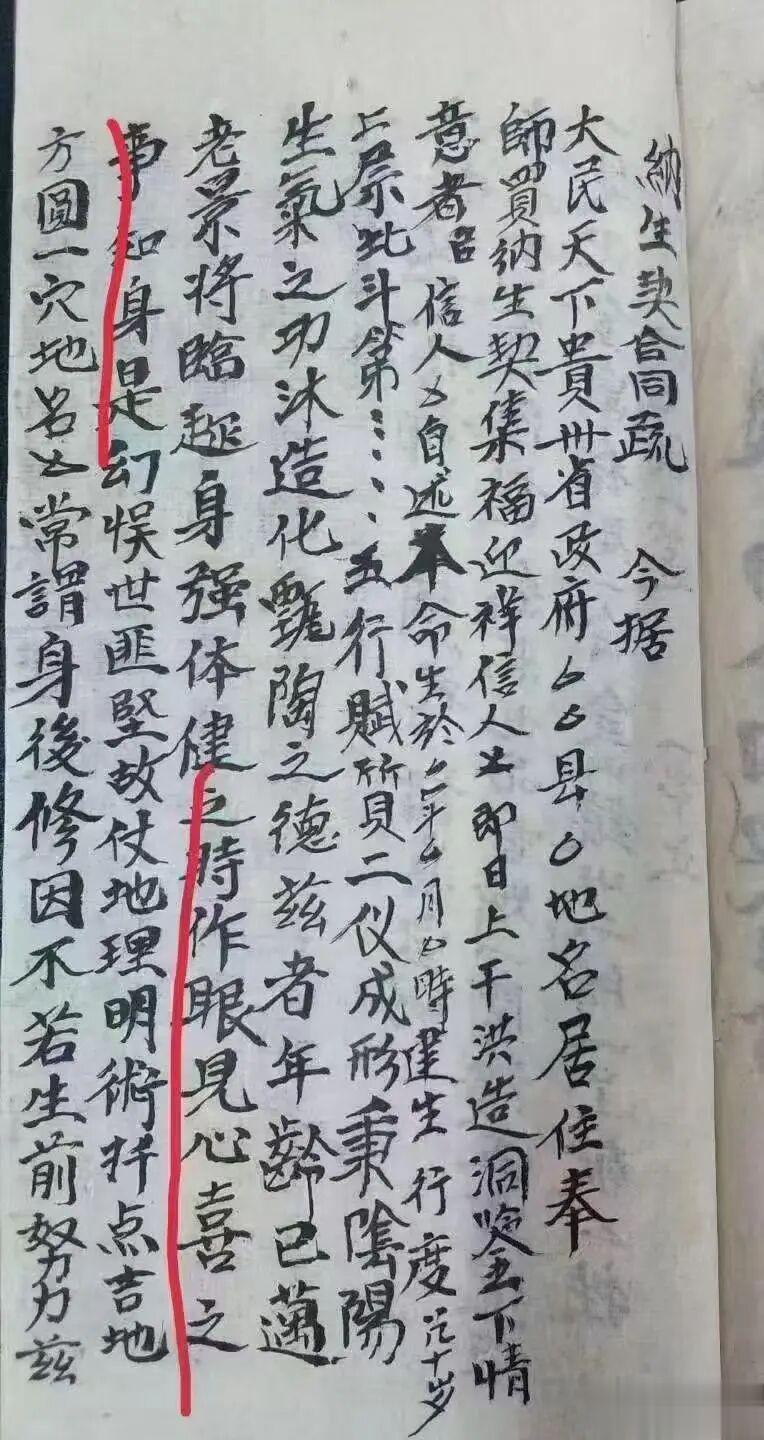 納生契合同疏 今据
大民天下貴州省政府厶厶县厶地名居住奉
師買纳生契集福迎祥信人厶即日上干洪造洞喰 下情
意者言信人厶自述本命生於厶年厶月厶時建生行度 十岁
上属北斗第……五行賦質二仪成形秉陰陽
生氣之功沐造化甄陶之德兹者年齡已邁
老景将臨趂身强体健之時作眼見心喜之
事知身是幻悮世匪堅故仗地理明術扦点吉地
方圓一穴地名厶常謂身後修因不若生前努力兹